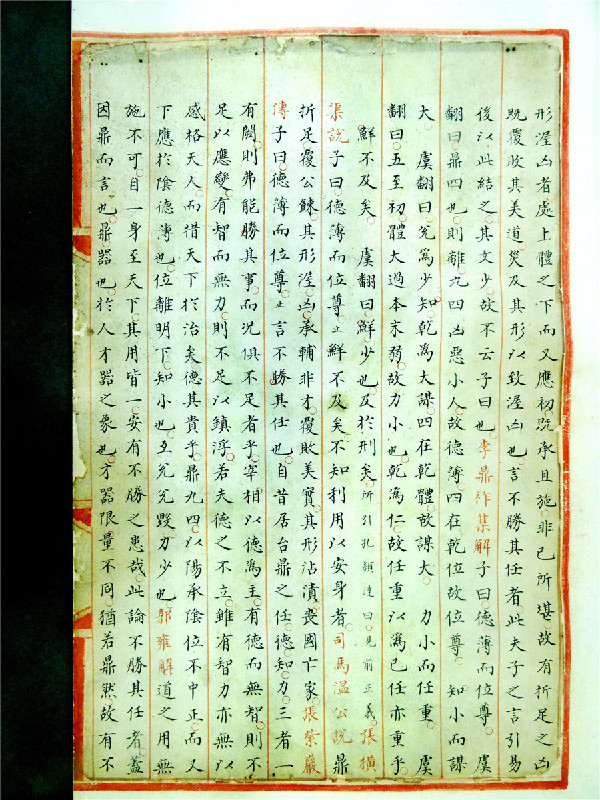 形渥凶者處上體之下而又應初既承且施非已所堪故有折足之凶
既覆敗其美道災及其形以致渥凶也言不勝其任者此夫子之言引易
後以此結之其文少故不云子曰也李鼎祚集解子曰德薄而位尊虞
翻曰鼎四也則離九四凶惡小人故德薄四在乾位故位尊 知小而謀
大 虞翻曰兌為少知乾為大謀四在乾體故謀大 力小而任重 虞
翻曰五至初體大過本末弱故力小也乾為仁故任重以為已任亦重乎
鮮不及矣 虞翻曰鮮少也及於刑矣所引孔穎達曰見前正義張橫
渠說子曰德薄而位尊止鮮不及矣不知利用以安身者司馬溫公說鼎
折足覆公餗其形渥凶承輔非才覆敗美實其形沾漬喪國亡家張紫巖
傳子曰德薄而位尊止言不勝其任也自昔居台鼎之任德知力三者一
有闕則弗能勝其事而況俱不足者乎宰相以德為主有德而無智則不
足以應變有智而無力則不足以鎮浮若夫德之不立雖有智力亦無以
感格天人而措天下於治矣德其貴乎鼎九四以陽承陰位不中正而又
下應於陰德薄也位離明下知小也互兌兌毀力少也郭雍解道之用無
施不可自一身至天下其用皆一安有不勝之患哉此論不勝其任者蓋
因鼎而言也鼎器也於人才器之象也才器限量不同猶若鼎然故有不